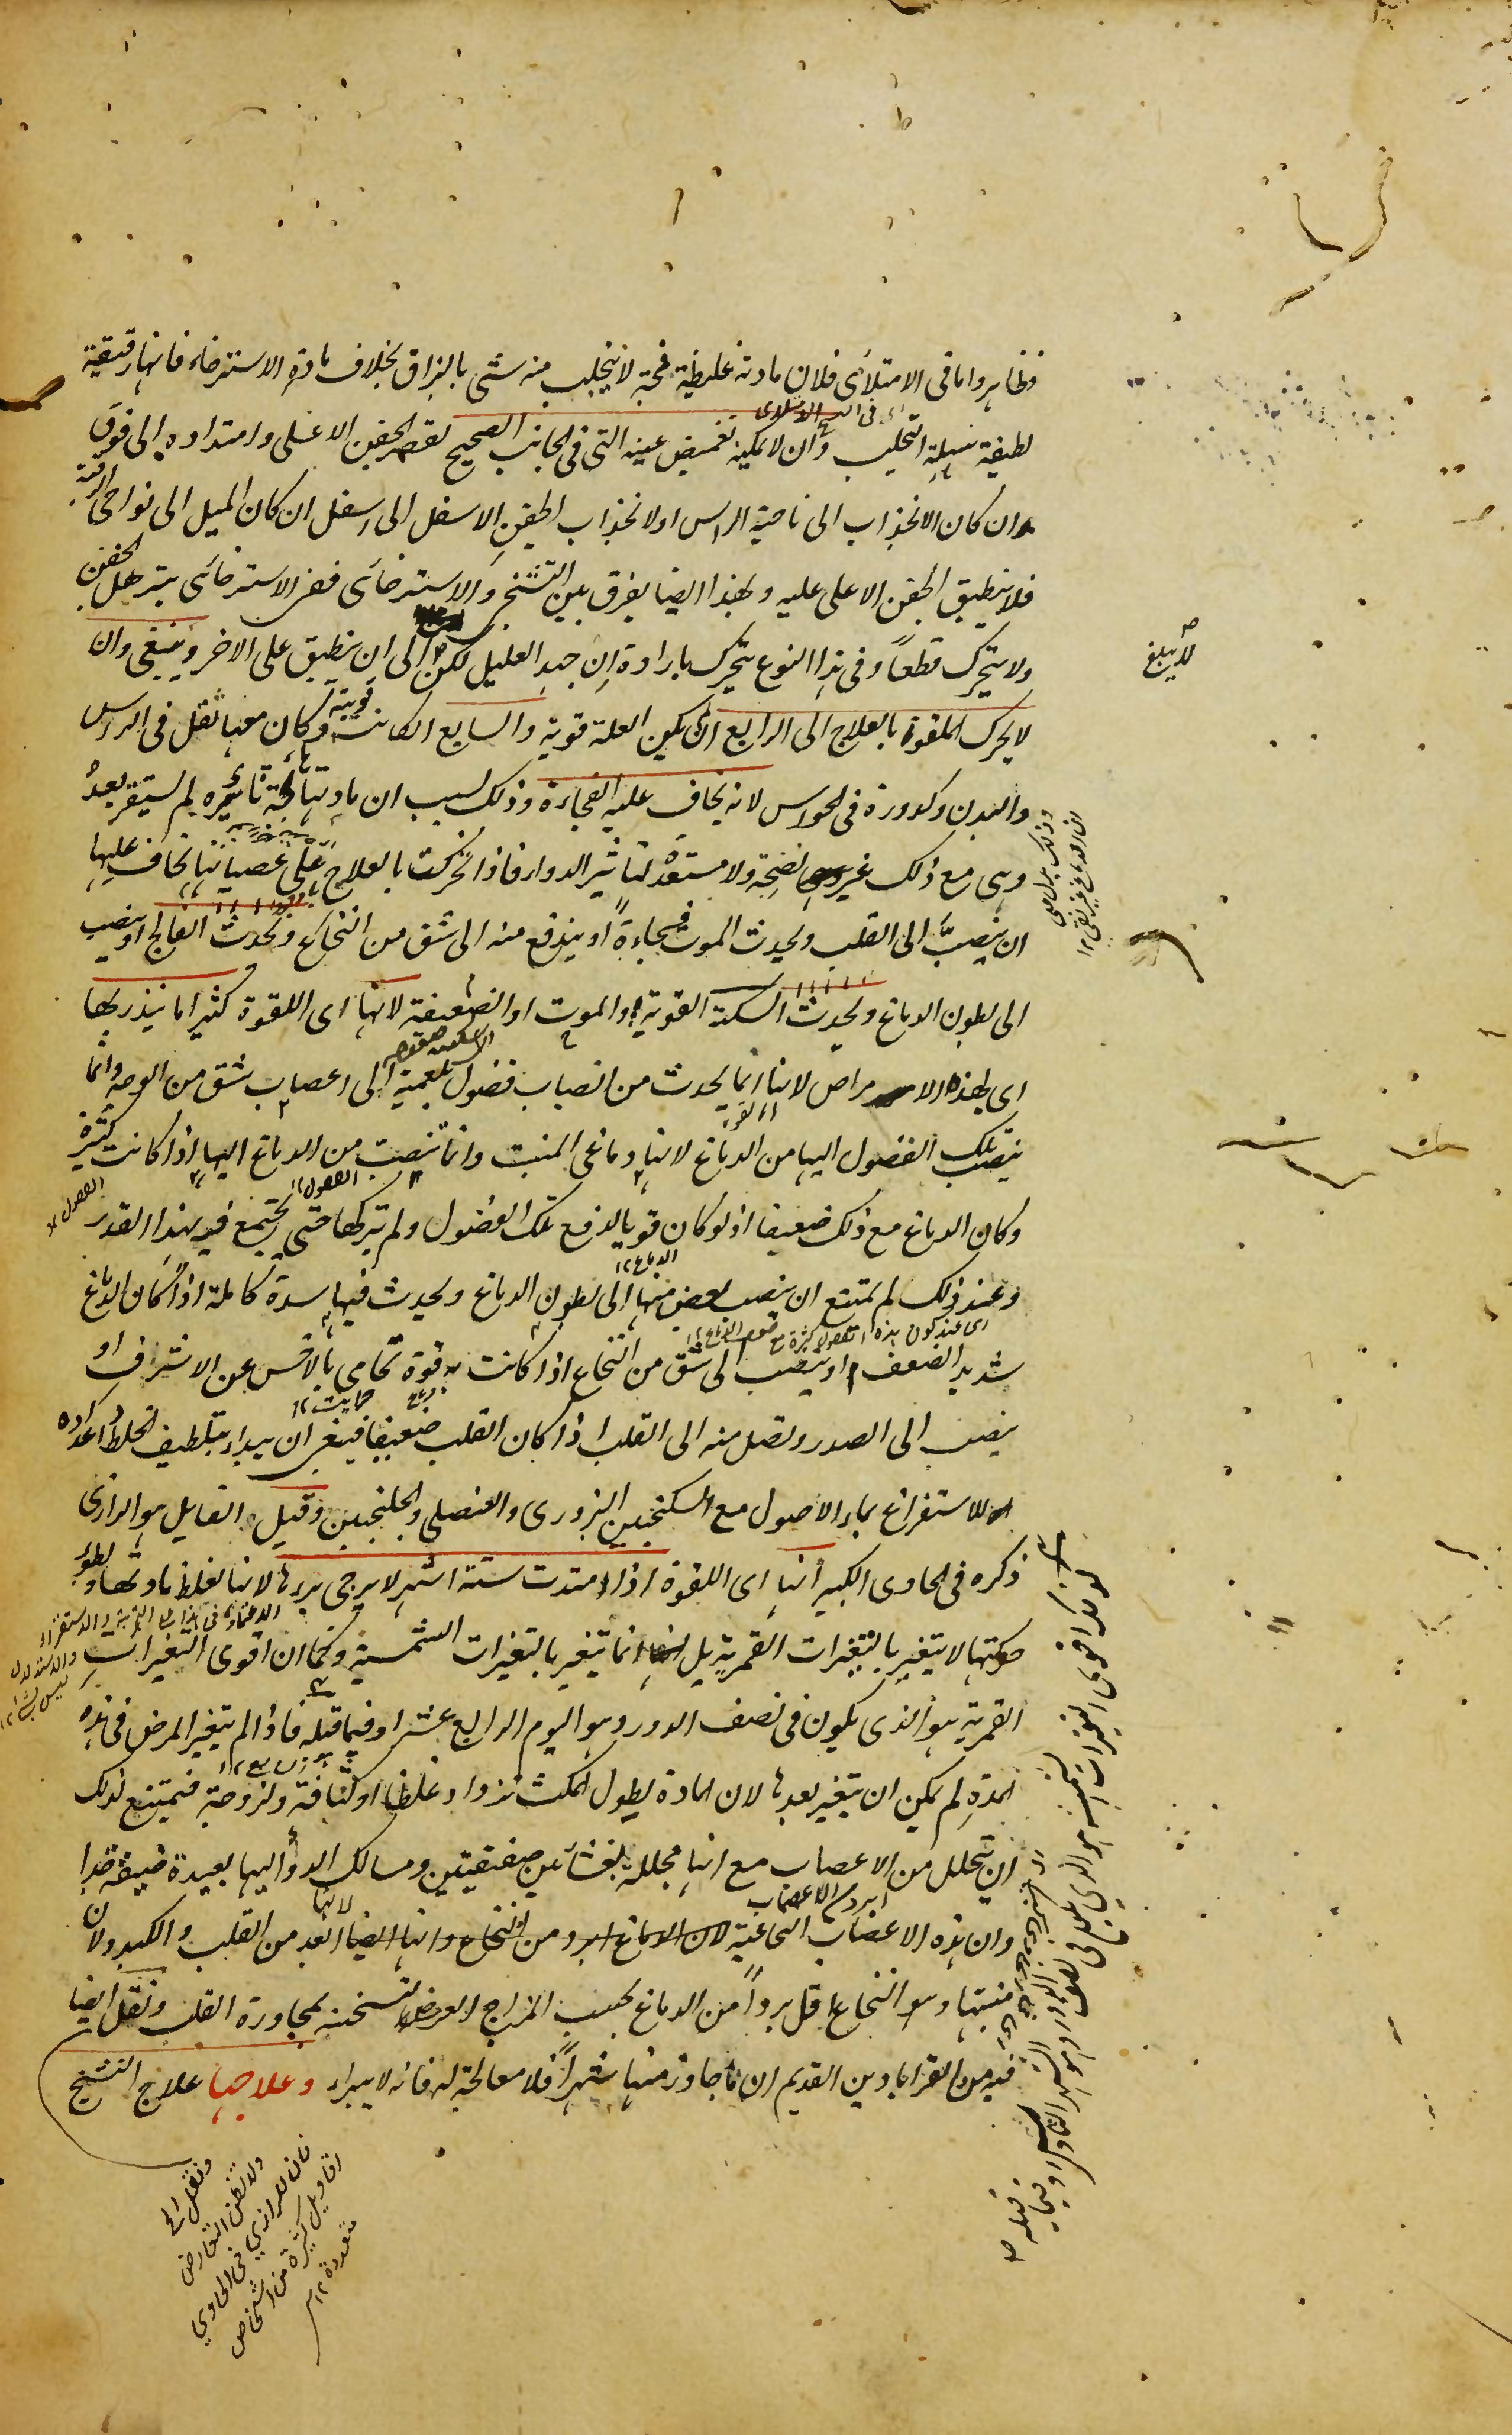 فظاهر واما فى الامتلائى فلان مادته غليظة فجة لا ينجلب منه شئ بالبزاق بخلاف مادة الاسترخاء فانها رقيقة
لطيفة سهلة التحلب وان لا يمكنه تغميض عينه التى فى الجانب الصحيح لتقصر الجفن الاعلى وامتداده الى فوق
ان كان الانجذاب الى ناحية الراس او لانجذاب الجفن الاسفل الى اسفل ان كان الميل الى نواحى الرقبة
فلا ينطبق الجفن الاعلى عليه وبهذا ايضا يفرق بين التشنجى والاسترخائى ففى الاسترخائى يترهل الجفن
ولا يتحرك قطعاً وفى هذا النوع يتحرك بارادة ان جهد العليل لكن الى ان ينطبق على الاخر وينبغى وان
لا يحرك الملقوة بالعلاج الى الرابع ان يكون العلة قوية والسابع ان كانت قوية وكان معها ثقل فى الراس
والبدن وكدورة فى الحواس لانه يخاف عليه الفجاءة وذلك لسبب ان مادتها فجة ثائرة لم يستقر بعد
وهى مع ذلك غير نضجة ولا مستعدة لتاثير الدواء فاذا تحركت بالعلاج على عصيانها يخاف عليها
ان ينصبّ الى القلب ويحدث الموت فجاءةً او يندفع منه الى شق من النخاع ويحدث الفالج او ينصب
الى بطون الدماغ ويحدث السكتة القوية والموت او الضعيفة لانها اى اللقوة كثيرا ما ينذر بها
اى بهذه الامراض لانها انما يحدث من انصباب فضول بلغمية الى اعصاب شق من الوجه وانما
ينصب تلك الفضول اليها من الدماغ لانها دماغى المنبت وانما تنصب من الدماغ اليها اذا كانت كثيرة
وكان الدماغ مع ذلك ضعيفا اذ لو كان قويا لدفع تلك الفضول ولم يتركها حتى يجتمع فيه بهذا القدر
وعند ذلك لم يمتنع ان ينصب بعض منها الى بطون الدماغ ويحدث فيها سدة كاملة اذا كان الدماغ
شديد الضعف او ينصب الى شق من النخاع اذا كانت به قوة تحامى بالاخس عن الاشرف او
ينصب الى الصدر وتصل منه الى القلب اذا كان القلب ضعيفا فينبغى ان يبداء بتلطيف الخلط واعداده
للاستفراغ بماء الاصول مع السكنجبين البزورى والعنصلى والجلنجبين وقيل القايل هو الرازى
ذكره فى الحاوى الكبير انها اى اللقوة اذا امتدت ستة اشهر لا يرجى برءها لانها لغلظ مادتها وبطوء
حركتها لا يتغير بالتغيرات القمرية بل انما تتغير بالتغيرات الشمسية وكما ان اقوى التغيرات
القمرية هو الذى يكون فى نصف الدور وهو اليوم الرابع عشر او فيما قبله فاذا لم يتغير المرض فى هذه
المدة لم يمكن ان يتغير بعدها لان المادة بطول المكث تزداد غلظا وكثافة ولزوجة فيمتنع لذلك
ان يتحلل من الاعصاب مع انها مجللة بغشائين صفيقين ومسالك الدواء اليها بعيدة ضيقة جدا
وان هذه الاعصاب ابرد من الاعصاب النخاعية لان الدماغ ابرد من النخاع وانها ايضا لانها ابعد من القلب والكبد ولان
منبتها وهو النخاع اقل برداً من الدماغ بحسب المزاج لتسخنه بمجاورة القلب ونقل ايضا
فيه من القراباذين القديم ان ما جاوز منها شهراً فلا معالجة له فانه لا يبراء وعلاجها علاج التشنج
ونقل الخ
ولا تظن التعارض
فان للرازي في الحاوي
اقاويل كثيرة من اشخاص
متعددة ١٢